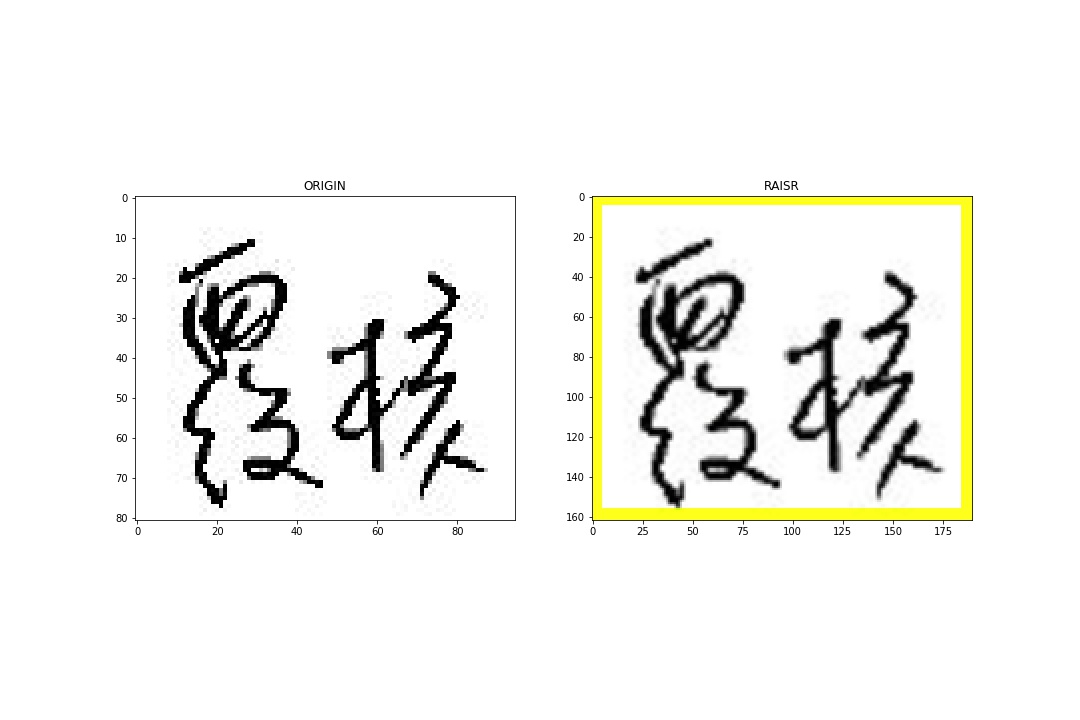 ORIGIN
0
10
20
30
40
50
60
70
80
0 20 40 60 80
核
RAISR
0
20
40
60
80
100
120
140
160
0 25 50 75 100 125 150 175
核